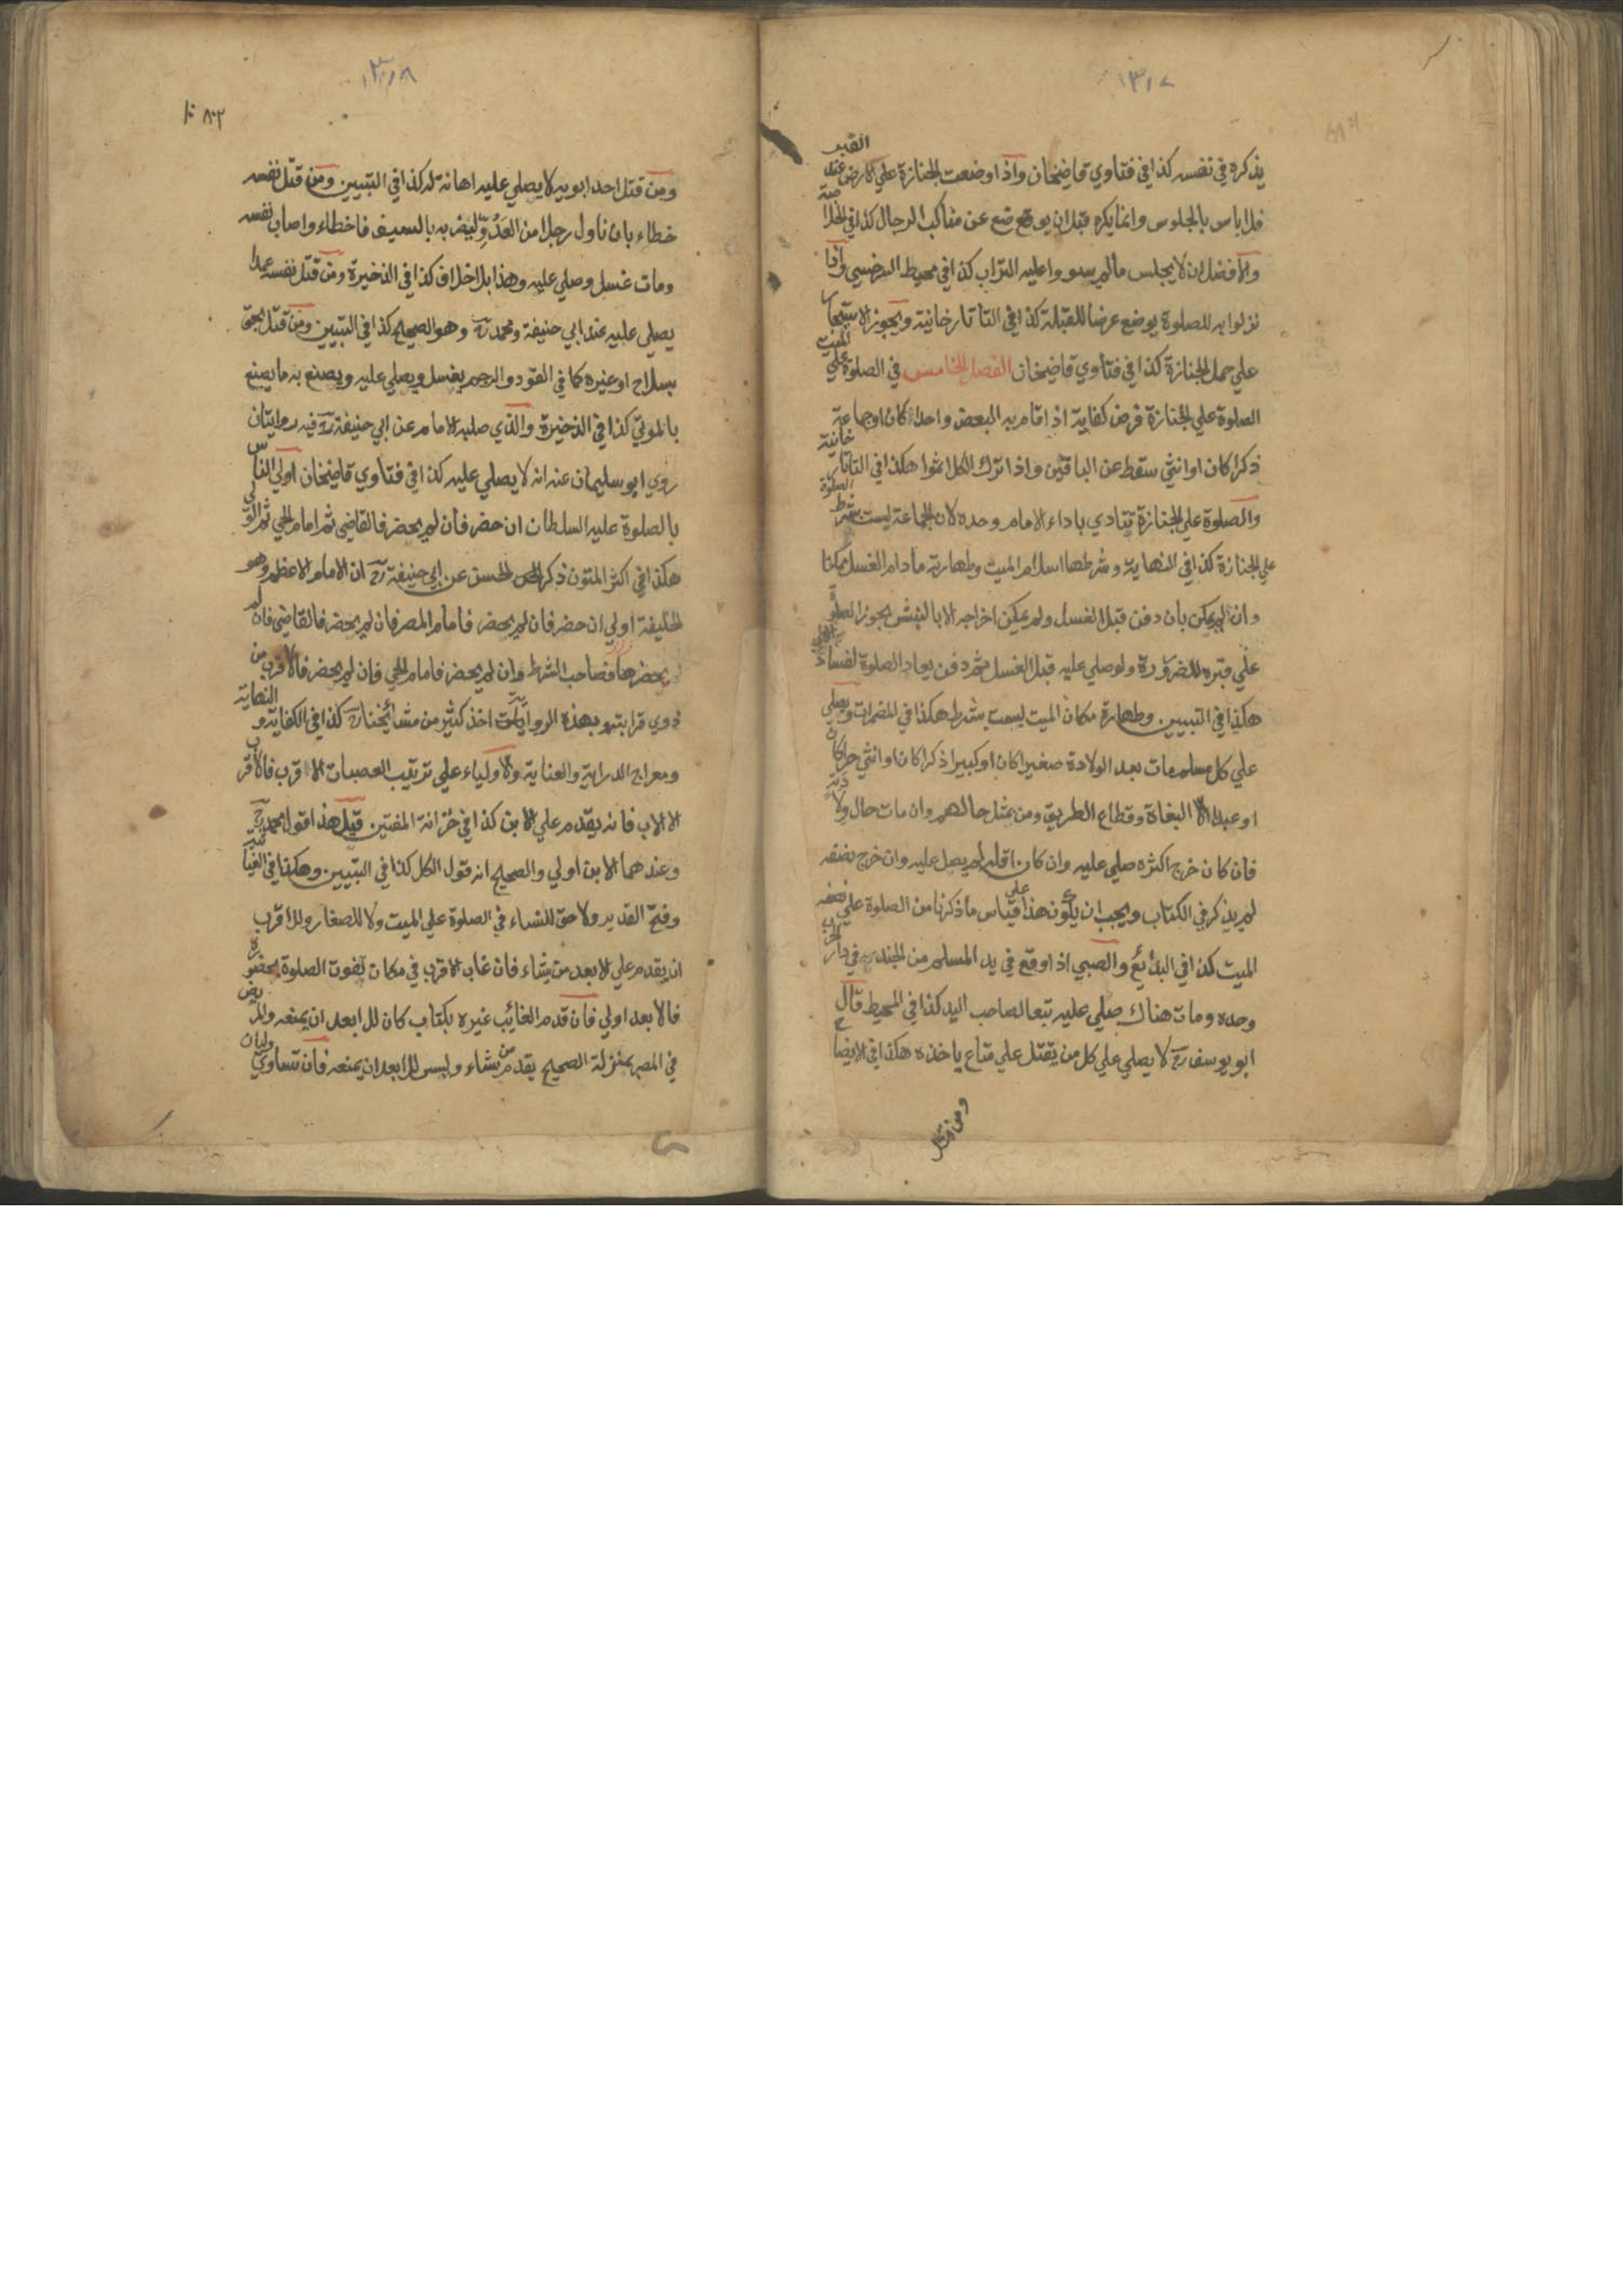 ١٣١٧
يذكره في نفسه كذا في فتاوي قاضيخان واذا وضعت الجنازة علي الارض عند القبر
فلا باس بالجلوس وانما يكره قبل ان يوضع عن مناكب الرجال كذا في الخلاصة
والافضل ان لا يجلس مالم يسووا عليه التراب كذا في محيط السرخسي واذا
نزلوا به للصلوة يوضع عرضا للقبلة كذا في التاتارخانية ويجوز الاستيجار
علي حمل الجنازة كذا في فتاوي قاضيخان الفصل الخامس في الصلوة علي الميت
الصلوة علي الجنازة فرض كفاية اذا قام به البعض واحدا كان او جماعة
ذكرا كان او انثي سقط عن الباقين واذا ترك الكل اثموا هكذا في التاتارخانية
والصلوة علي الجنازة تتادي باداء الامام وحده لان الجماعة ليست بشرط الصلوة
علي الجنازة كذا في النهاية وشرطها اسلام الميت وطهارته مادام الغسل ممكنا
وان لم يمكن بان دفن قبل الغسل ولم يمكن اخراجه الا بالنبش يجوز الصلوة
علي قبره للضرورة ولو صلي عليه قبل الغسل ثم دفن يعاد الصلوة لفساد
هكذا في التبيين وطهارة مكان الميت ليست بشرط هكذا في المضمرات ويصلي
علي كل مسلم مات بعد الولادة صغيرا كان او كبيرا ذكرا كان او انثي حرا كان
او عبدا الا البغاة وقطاع الطريق ومن بمثل حالهم وان مات حال ولادته
فان كان خرج اكثره صلي عليه وان كان اقله لم يصل عليه وان خرج نصفه
لم يذكر في الكتاب ويجب ان يكون هذا علي قياس ما ذكرنا من الصلوة علي نصف
الميت كذا في البدائع والصبي اذا وقع في يد المسلم من الجند في دار الحرب
وحده ومات هناك صلي عليه تبعا لصاحب اليد كذا في المحيط قال
ابو يوسف رح لا يصلي علي كل من يقتل علي متاع ياخذه هكذا في الايضاح
ومن قتل
١٣١٨
ومن قتل احد ابويه لا يصلي عليه اهانة له كذا في التبيين ومن قتل نفسه
خطاء بان ناول رجلا من العدو ليضربه بالسيف فاخطاء واصاب نفسه
ومات غسل وصلي عليه وهذا بلا خلاف كذا في الذخيرة ومن قتل نفسه عمدا
يصلي عليه عند ابي حنيفة ومحمد رح وهو الصحيح كذا في التبيين ومن قتل بحق
بسلاح او غيره كما في القود والرجم يغسل ويصلي عليه ويصنع به ما يصنع
بالموتي كذا في الذخيرة والذي صلبه الامام عن ابي حنيفة رح فيه روايتان
روي ابو سليمان عنه انه لا يصلي عليه كذا في فتاوي قاضيخان اولي الناس
بالصلوة عليه السلطان ان حضر فان لم يحضر فالقاضي ثم امام الحي ثم الولي
هكذا في اكثر المتون ذكر الحسن عن ابي حنيفة رح ان الامام الاعظم وهو
الخليفة اولي ان حضر فان لم يحضر فامام المصر فان لم يحضر فالقاضي فان لم
يحضر فصاحب الشرط وان لم يحضر فامام الحي فان لم يحضر فالاقرب من
ذوي قرابته وبهذه الرواية اخذ كثير من مشائخنا رح كذا في الكفاية والنهاية
ومعراج الدراية والعناية والاولياء علي ترتيب العصبات الاقرب فالاقرب
الا الاب فانه يقدم علي الابن كذا في خزانة المفتين قيل هذا قول محمد رح
وعندهما الابن اولي والصحيح انه قول الكل كذا في التبيين وهكذا في الغياثية
وفتح القدير ولا حق للنساء في الصلوة علي الميت ولا للصغار وللاقرب
ان يقدم علي الابعد من يشاء فان غاب الاقرب في مكان تفوت الصلوة بحضوره
فالابعد اولي فان قدم الغائب غيره بكتاب كان للابعد ان يمنعه والمريض
في المصر بمنزلة الصحيح يقدم من يشاء وليس للابعد ان يمنعه فان تساوي وليان